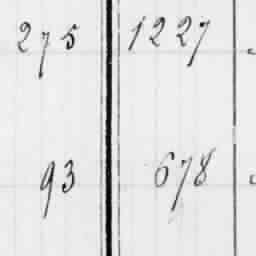 275 1227
93 678